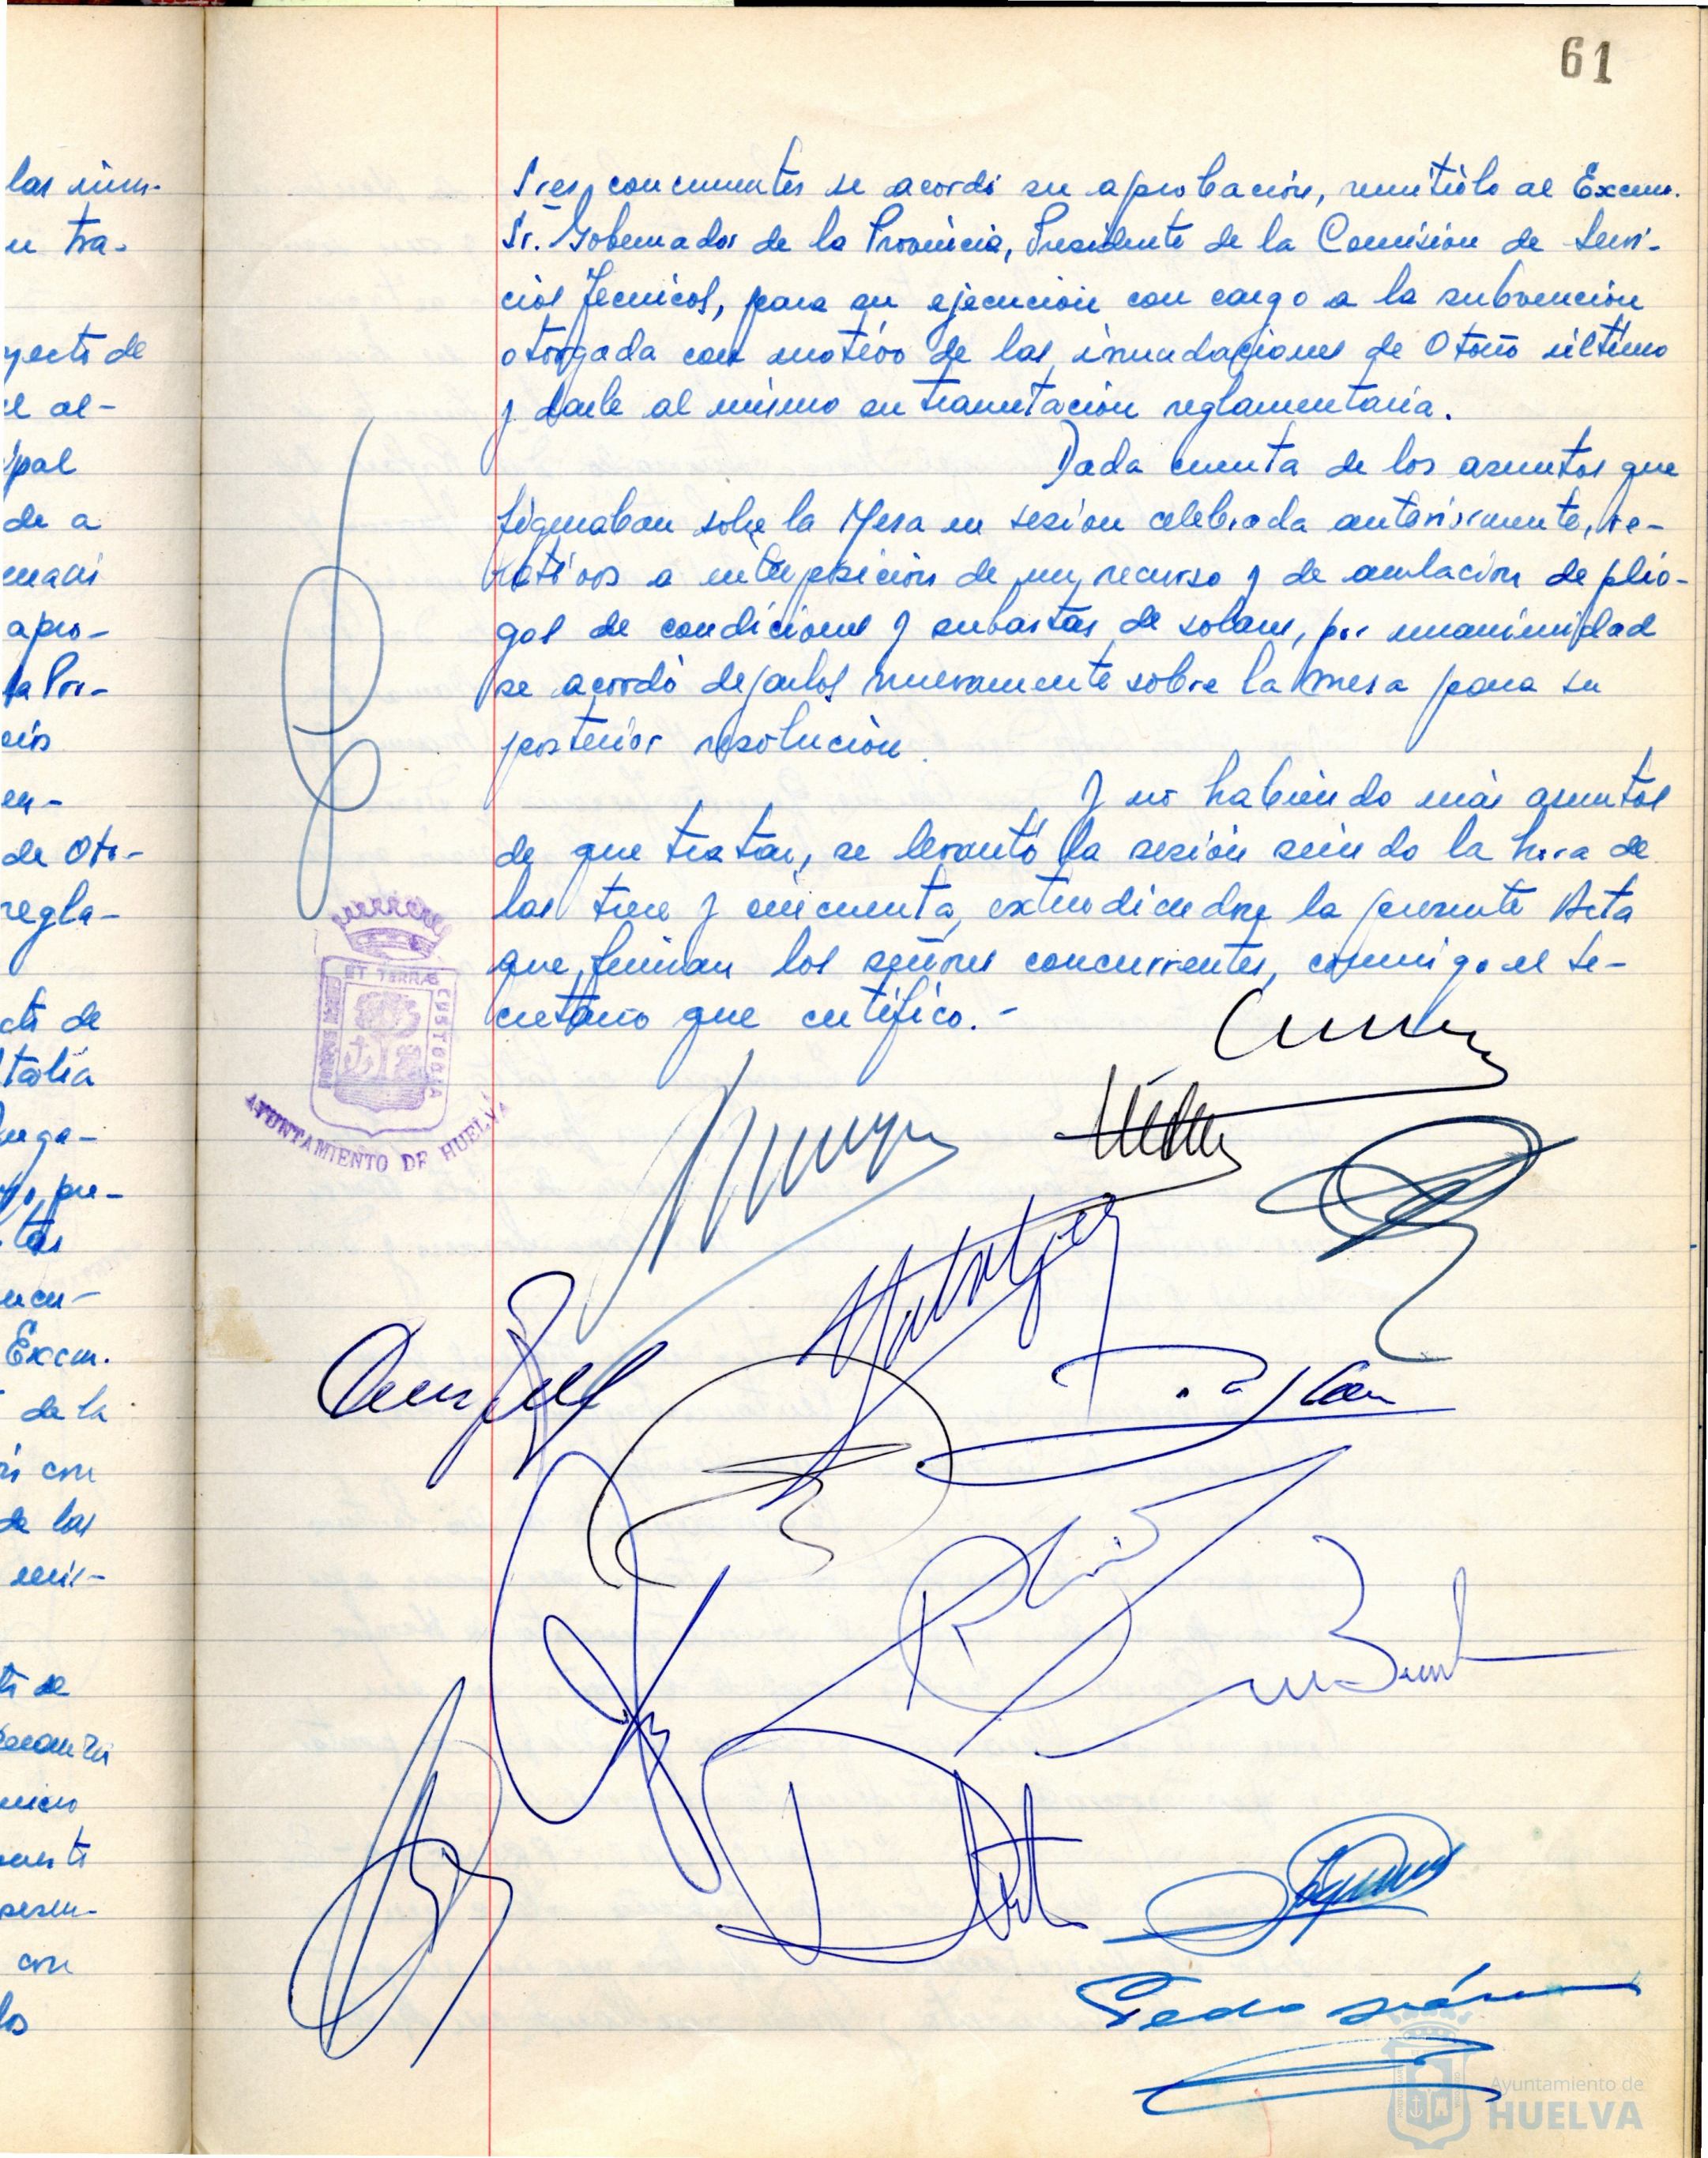 61
las núm-
tra-
yecto de
el al-
ipal
de a
apro-
la Pro-
en-
de Oto-
regla-
de
pre-
Excm.
de la
con
de los
con
Sres. concurrentes se acordó su aprobación, remitirlo al Excmo.
Sr. Gobernador de la Provincia, Presidente de la Comisión de Servi-
cios Técnicos, para su ejecución con cargo a la subvención
otorgada con motivo de las inundaciones de Otoño último
y darle al mismo su tramitación reglamentaria.
Dada cuenta de los asuntos que
figuraban sobre la Mesa en sesión celebrada anteriormente, re-
lativos a interposición de un recurso y de anulación de plie-
gos de condiciones y subastas de solares, por unanimidad
se acordó dejarlos nuevamente sobre la mesa para su
posterior resolución.
Y no habiendo más asuntos
de que tratar, se levantó la sesión siendo la hora de
las trece y cincuenta, extendiendose la presente Acta
que firman los señores concurrentes, conmigo el Se-
cretario que certifico.-
PORTUS MARIS ET TERRAE CUSTODIA
AYUNTAMIENTO DE HUELVA
Pedro
Ayuntamiento de
HUELVA